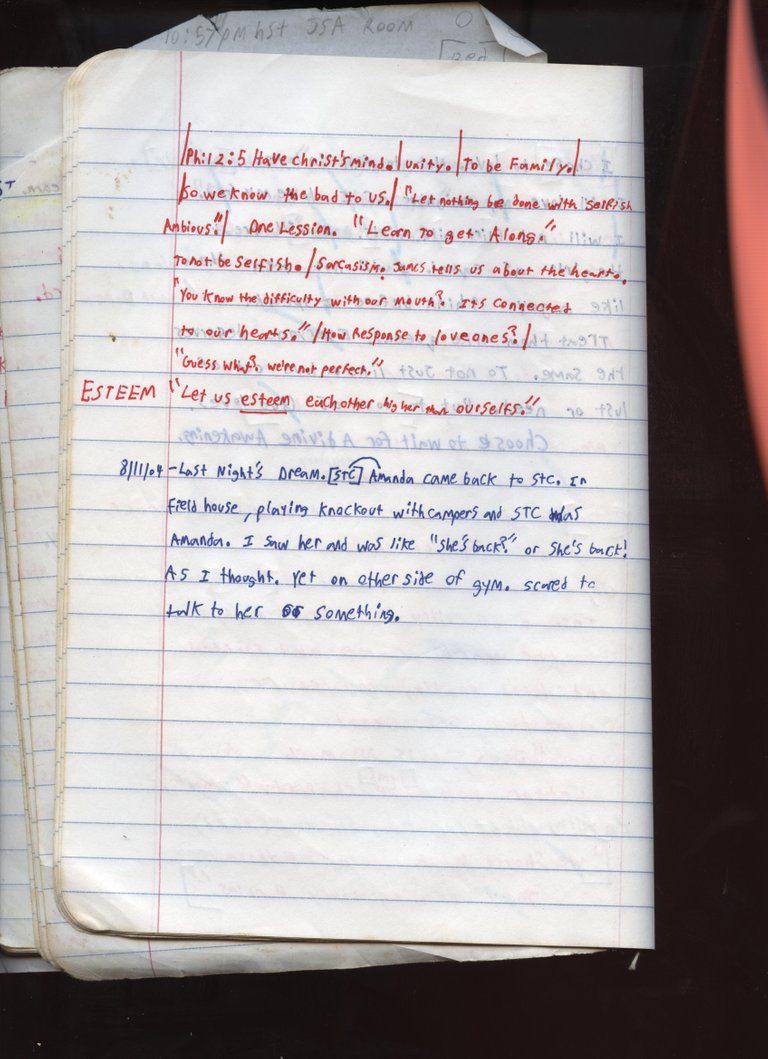 10:57pm hst JSA ROOM
/Phil 2:5 Have christ's mind./ unity./ To be Family./
/So we know the bad to us./ "Let nothing be done with selfish
Ambious."/ One Lession. "Learn To get Along."
To not be selfish./ Sarcasism. James tells us about the hearts.
"You know the difficulty with our mouth? Its connected
to our hearts."/ How Response to loveones?/
"Guess what? we're not perfect."
ESTEEM "Let us esteem eachother higher than ourselfs."
8/11/04 - Last Night's Dream. [STC] Amanda came back to STC. In
Field house, playing knockout with campers and STC was
Amanda. I saw her and was like "she's back?" or She's back!
As I thought. Yet on other side of gym. scared to
talk to her or something.